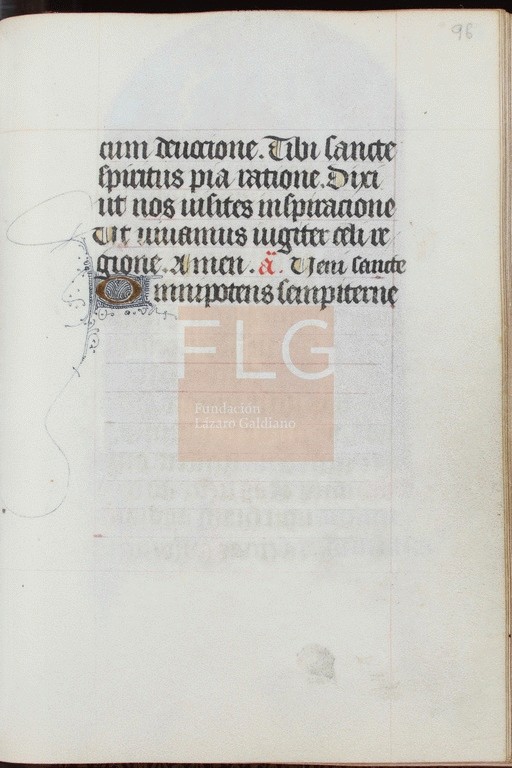 96
cum deuocione. Tibi sancte
spiritus pia ratione. Dixi
ut nos uisites inspiracione
Ut uiuamus iugiter celi re
gione. Amen. a. Ueni sancte
Omnipotens sempiterne
FLG
Fundación
Lázaro Galdiano